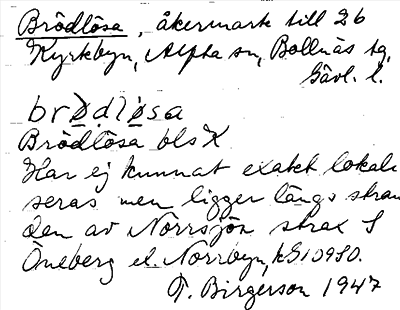 Brödlösa, åkermark till 26
Kyrkbyn, Alfta sn, Bollnäs tg,
Gävl. l.
brødløsa
Brödlösa bls K
Har ej kunnat exakt lokali
seras men ligger längs stran
den av Norrsjön strax S
Öneberg el. Norrbyn,
T. Birgerson 1947